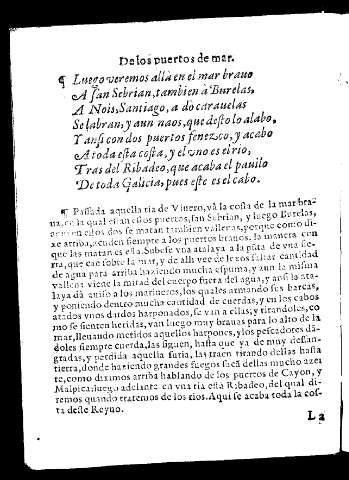 De los puertos de mar.
¶ Luego veremos allà en el mar brauo
A san Sebrian, tambien à Burelas,
A Nois, Santiago, a dò carauelas
Se labran, y aun naos, que desto lo alabo,
Yansi con dos puertos fenezco, y acabo
A toda esta costa, y el vno es el rio,
Tras del Ribadeo, que acaba el pauilo
De toda Galicia, pues este es el cabo.
¶ Passada aquella ria de Viuero, và la costa de la mar bra-
ua, en la qual estan estos puertos, san Sebrian, y luego Burelas,
en estos dos se matan tambien vallenas, porque como di-
xe arriba, acuden siempre a los puertos brauos. la manera con
que las matan es esta. Subese vna atalaya a la pũta de vna sie-
rra, que cae sobre la mar, y de alli vee de lexos saltar cantidad
de agua para arriba haziendo mucha espuma, y aun la misma
vallena viene la mitad del cuerpo fuera del agua, y ansi la ata-
laya dà auiso a los marineros, los quales armando sus barcas,
y poniendo dentro mucha cantidad de cuerdas, y en los cabos
atados vnos dardos harponados, se van a ellas; y tirandoles, co
mo se sienten heridas, van luego muy brauas para lo alto de la
mar, lleuando metidos aquellos harpones, y los pescadores dã-
doles siempre cuerda, las siguen, hasta que ya de muy desan-
gradas, y perdida aquella furia, las traen tirando dellas hasta
tierra, donde haziendo grandes fuegos sacã dellas mucho azei
te, como diximos arriba hablando de los puertos de Cayon, y
Malpica: luego adelante en vna ria està Ribadeo, del qual di-
remos quando tratemos de los rios. Aqui se acaba toda la cos-
ta deste Reyno.
La